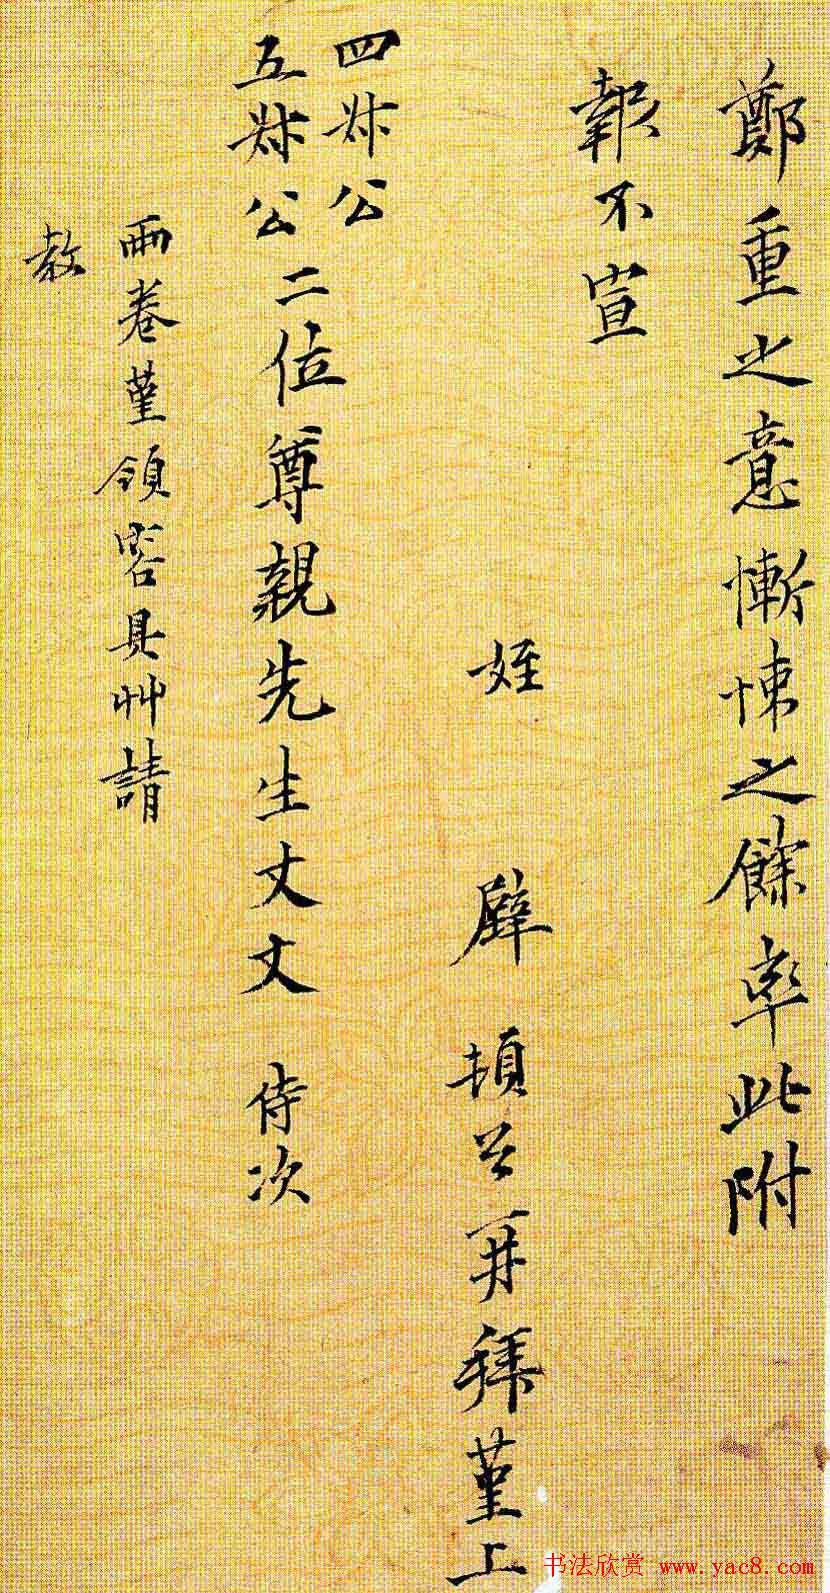 鄭重之意慚悚之餘率此附
報不宣
姪 壁 頓首再拜謹上
四叔公
五叔公二位尊親先生丈丈 侍次
兩卷謹領容具艸請
教
书法欣赏 www.yac8.com